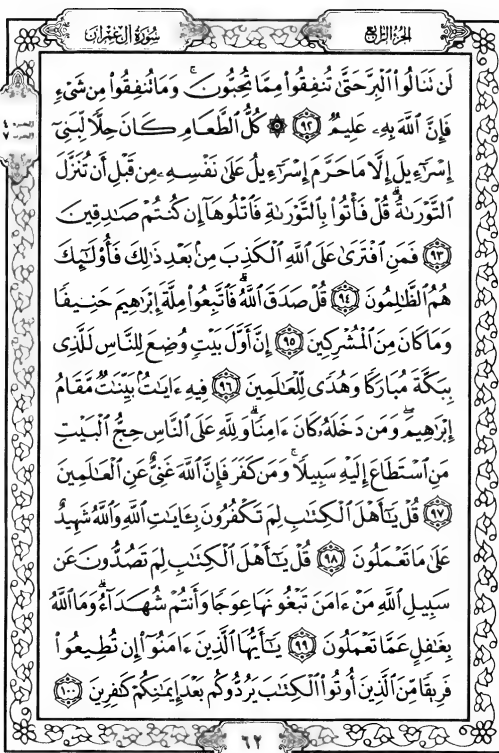 سُورَةُ آلِ عِمْرَان
الجُزْءُ الرَّابِعُ
لَن تَنَالُوا۟ ٱلْبِرَّ حَتَّىٰ تُنفِقُوا۟ مِمَّا تُحِبُّونَ ۚ وَمَا تُنفِقُوا۟ مِن شَىْءٍ
فَإِنَّ ٱللَّهَ بِهِۦ عَلِيمٌ ٩٢ ۞ كُلُّ ٱلطَّعَامِ كَانَ حِلًّا لِّبَنِىٓ
إِسْرَٰٓءِيلَ إِلَّا مَا حَرَّمَ إِسْرَٰٓءِيلُ عَلَىٰ نَفْسِهِۦ مِن قَبْلِ أَن تُنَزَّلَ
ٱلتَّوْرَىٰةُ ۗ قُلْ فَأْتُوا۟ بِٱلتَّوْرَىٰةِ فَٱتْلُوهَآ إِن كُنتُمْ صَٰدِقِينَ
٩٣ فَمَنِ ٱفْتَرَىٰ عَلَى ٱللَّهِ ٱلْكَذِبَ مِنۢ بَعْدِ ذَٰلِكَ فَأُو۟لَٰٓئِكَ
هُمُ ٱلظَّٰلِمُونَ ٩٤ قُلْ صَدَقَ ٱللَّهُ ۗ فَٱتَّبِعُوا۟ مِلَّةَ إِبْرَٰهِيمَ حَنِيفًا
وَمَا كَانَ مِنَ ٱلْمُشْرِكِينَ ٩٥ إِنَّ أَوَّلَ بَيْتٍ وُضِعَ لِلنَّاسِ لَلَّذِى
بِبَكَّةَ مُبَارَكًا وَهُدًى لِّلْعَٰلَمِينَ ٩٦ فِيهِ ءَايَٰتٌۢ بَيِّنَٰتٌ مَّقَامُ
إِبْرَٰهِيمَ ۖ وَمَن دَخَلَهُۥ كَانَ ءَامِنًا ۗ وَلِلَّهِ عَلَى ٱلنَّاسِ حِجُّ ٱلْبَيْتِ
مَنِ ٱسْتَطَاعَ إِلَيْهِ سَبِيلًا ۚ وَمَن كَفَرَ فَإِنَّ ٱللَّهَ غَنِىٌّ عَنِ ٱلْعَٰلَمِينَ
٩٧ قُلْ يَٰٓأَهْلَ ٱلْكِتَٰبِ لِمَ تَكْفُرُونَ بِـَٔايَٰتِ ٱللَّهِ وَٱللَّهُ شَهِيدٌ
عَلَىٰ مَا تَعْمَلُونَ ٩٨ قُلْ يَٰٓأَهْلَ ٱلْكِتَٰبِ لِمَ تَصُدُّونَ عَن
سَبِيلِ ٱللَّهِ مَنْ ءَامَنَ تَبْغُونَهَا عِوَجًا وَأَنتُمْ شُهَدَآءُ ۗ وَمَا ٱللَّهُ
بِغَٰفِلٍ عَمَّا تَعْمَلُونَ ٩٩ يَٰٓأَيُّهَا ٱلَّذِينَ ءَامَنُوٓا۟ إِن تُطِيعُوا۟
فَرِيقًا مِّنَ ٱلَّذِينَ أُوتُوا۟ ٱلْكِتَٰبَ يَرُدُّوكُم بَعْدَ إِيمَٰنِكُمْ كَٰفِرِينَ ١٠٠
٦٢